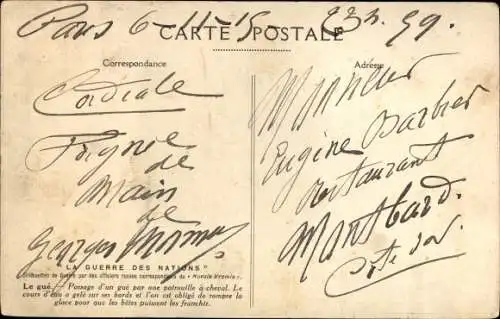 Paris 6-11-15- 23h. 59.
CARTE POSTALE
Correspondance
Adresse
Cordiale
Poignée
de
Main
de
Georges
Monsieur
Eugène Barbier
Restaurant
Montbard.
Côte d'or.
"LA GUERRE DES NATIONS"
de Guerre par des officiers russes correspondants du "Novoïé Vremia".
Le gué. Passage d'un gué par une patrouille à cheval. Le
cours d'eau a gelé sur ses bords et l'on est obligé de rompre la
glace pour que les bêtes puissent les franchir.